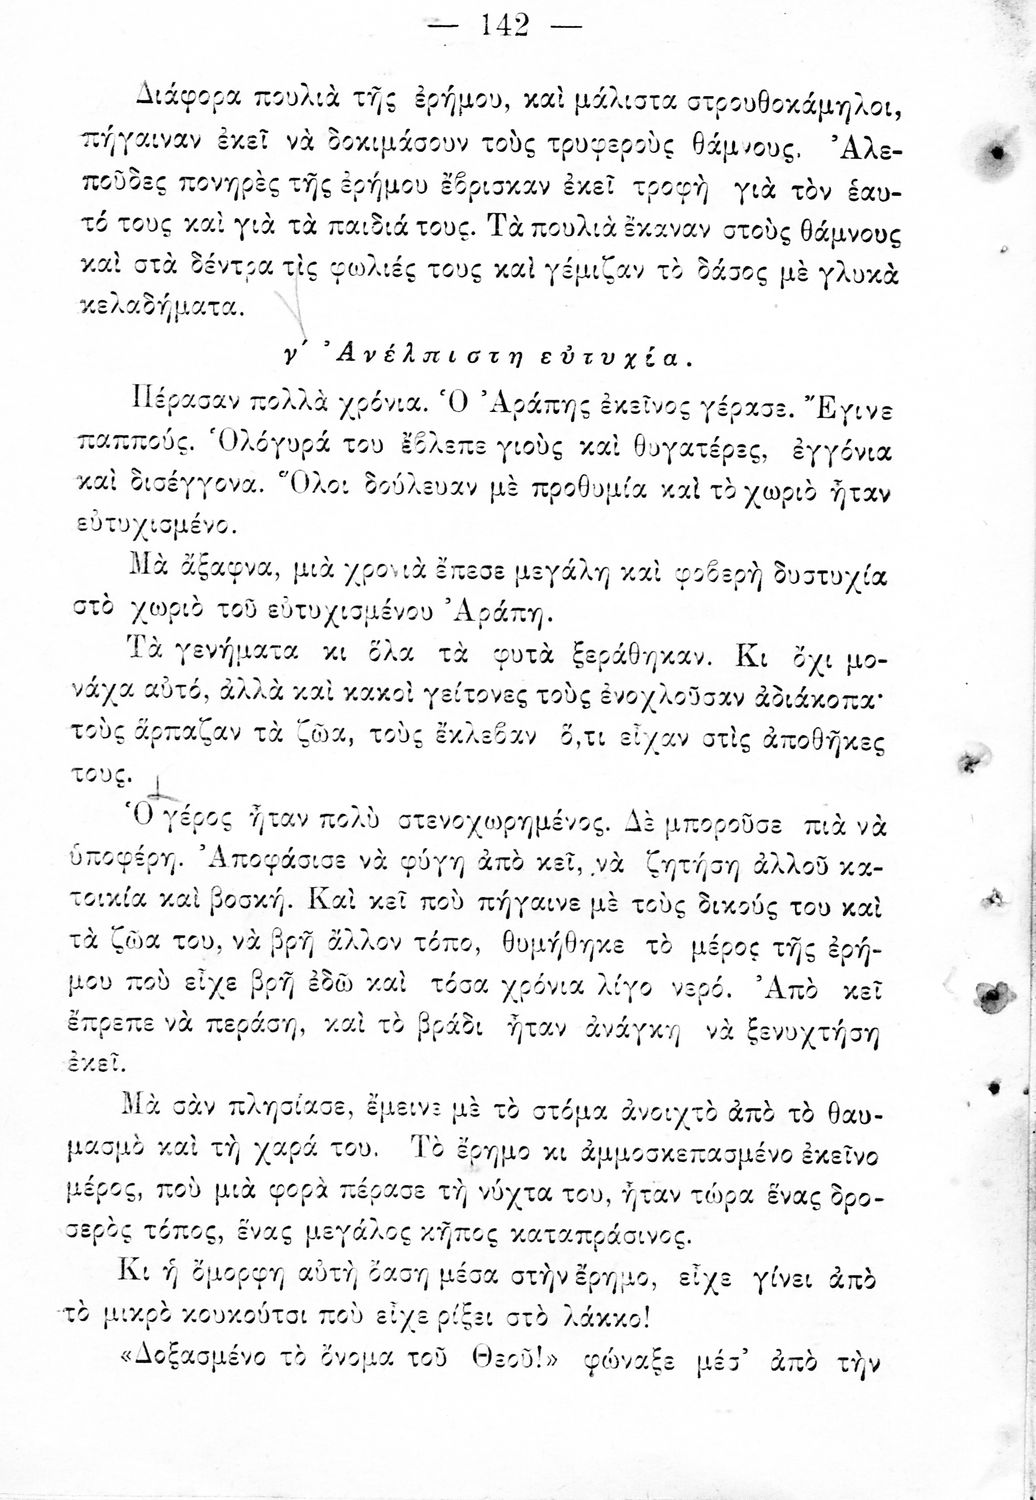 — 142 —
Διάφορα πουλιὰ τῆς ἐρήμου, καὶ μάλιστα στρουθοκάμηλοι,
πήγαιναν ἐκεῖ νὰ δοκιμάσουν τοὺς τρυφεροὺς θάμνους. Ἀλε-
ποῦδες πονηρὲς τῆς ἐρήμου ἔβρισκαν ἐκεῖ τροφὴ γιὰ τὸν ἑαυ-
τό τους καὶ γιὰ τὰ παιδιά τους. Τὰ πουλιὰ ἔκαναν στοὺς θάμνους
καὶ στὰ δέντρα τὶς φωλιές τους καὶ γέμιζαν τὸ δάσος μὲ γλυκὰ
κελαδήματα.
γ´ Ἀνέλπιστη εὐτυχία.
Πέρασαν πολλὰ χρόνια. Ὁ Ἀράπης ἐκεῖνος γέρασε. Ἔγινε
παππούς. Ὁλόγυρά του ἔβλεπε γιοὺς καὶ θυγατέρες, ἐγγόνια
καὶ δισέγγονα. Ὅλοι δούλευαν μὲ προθυμία καὶ τὸ χωριὸ ἦταν
εὐτυχισμένο.
Μὰ ἄξαφνα, μιὰ χρονιὰ ἔπεσε μεγάλη καὶ φοβερὴ δυστυχία
στὸ χωριὸ τοῦ εὐτυχισμένου Ἀράπη.
Τὰ γενήματα κι ὅλα τὰ φυτὰ ξεράθηκαν. Κι ὄχι μο-
νάχα αὐτό, ἀλλὰ καὶ κακοὶ γείτονες τοὺς ἐνοχλοῦσαν ἀδιάκοπα·
τοὺς ἅρπαζαν τὰ ζῶα, τοὺς ἔκλεβαν ὅ,τι εἶχαν στὶς ἀποθῆκες
τους.
Ὁ γέρος ἦταν πολὺ στενοχωρημένος. Δὲ μποροῦσε πιὰ νὰ
ὑποφέρη. Ἀποφάσισε νὰ φύγη ἀπὸ κεῖ, νὰ ζητήση ἀλλοῦ κα-
τοικία καὶ βοσκή. Καὶ κεῖ ποὺ πήγαινε μὲ τοὺς δικούς του καὶ
τὰ ζῶα του, νὰ βρῆ ἄλλον τόπο, θυμήθηκε τὸ μέρος τῆς ἐρή-
μου ποὺ εἶχε βρῆ ἐδῶ καὶ τόσα χρόνια λίγο νερό. Ἀπὸ κεῖ
ἔπρεπε νὰ περάση, καὶ τὸ βράδι ἦταν ἀνάγκη νὰ ξενυχτήση
ἐκεῖ.
Μὰ σὰν πλησίασε, ἔμεινε μὲ τὸ στόμα ἀνοιχτὸ ἀπὸ τὸ θαυ-
μασμὸ καὶ τὴ χαρά του. Τὸ ἔρημο κι ἀμμοσκεπασμένο ἐκεῖνο
μέρος, ποὺ μιὰ φορὰ πέρασε τὴ νύχτα του, ἦταν τώρα ἕνας δρο-
σερὸς τόπος, ἕνας μεγάλος κῆπος καταπράσινος.
Κι ἡ ὄμορφη αὐτὴ ὄαση μέσα στὴν ἔρημο, εἶχε γίνει ἀπὸ
τὸ μικρὸ κουκούτσι ποὺ εἶχε ρίξει στὸ λάκκο!
«Δοξασμένο τὸ ὄνομα τοῦ Θεοῦ!» φώναξε μέσ’ ἀπὸ τὴν